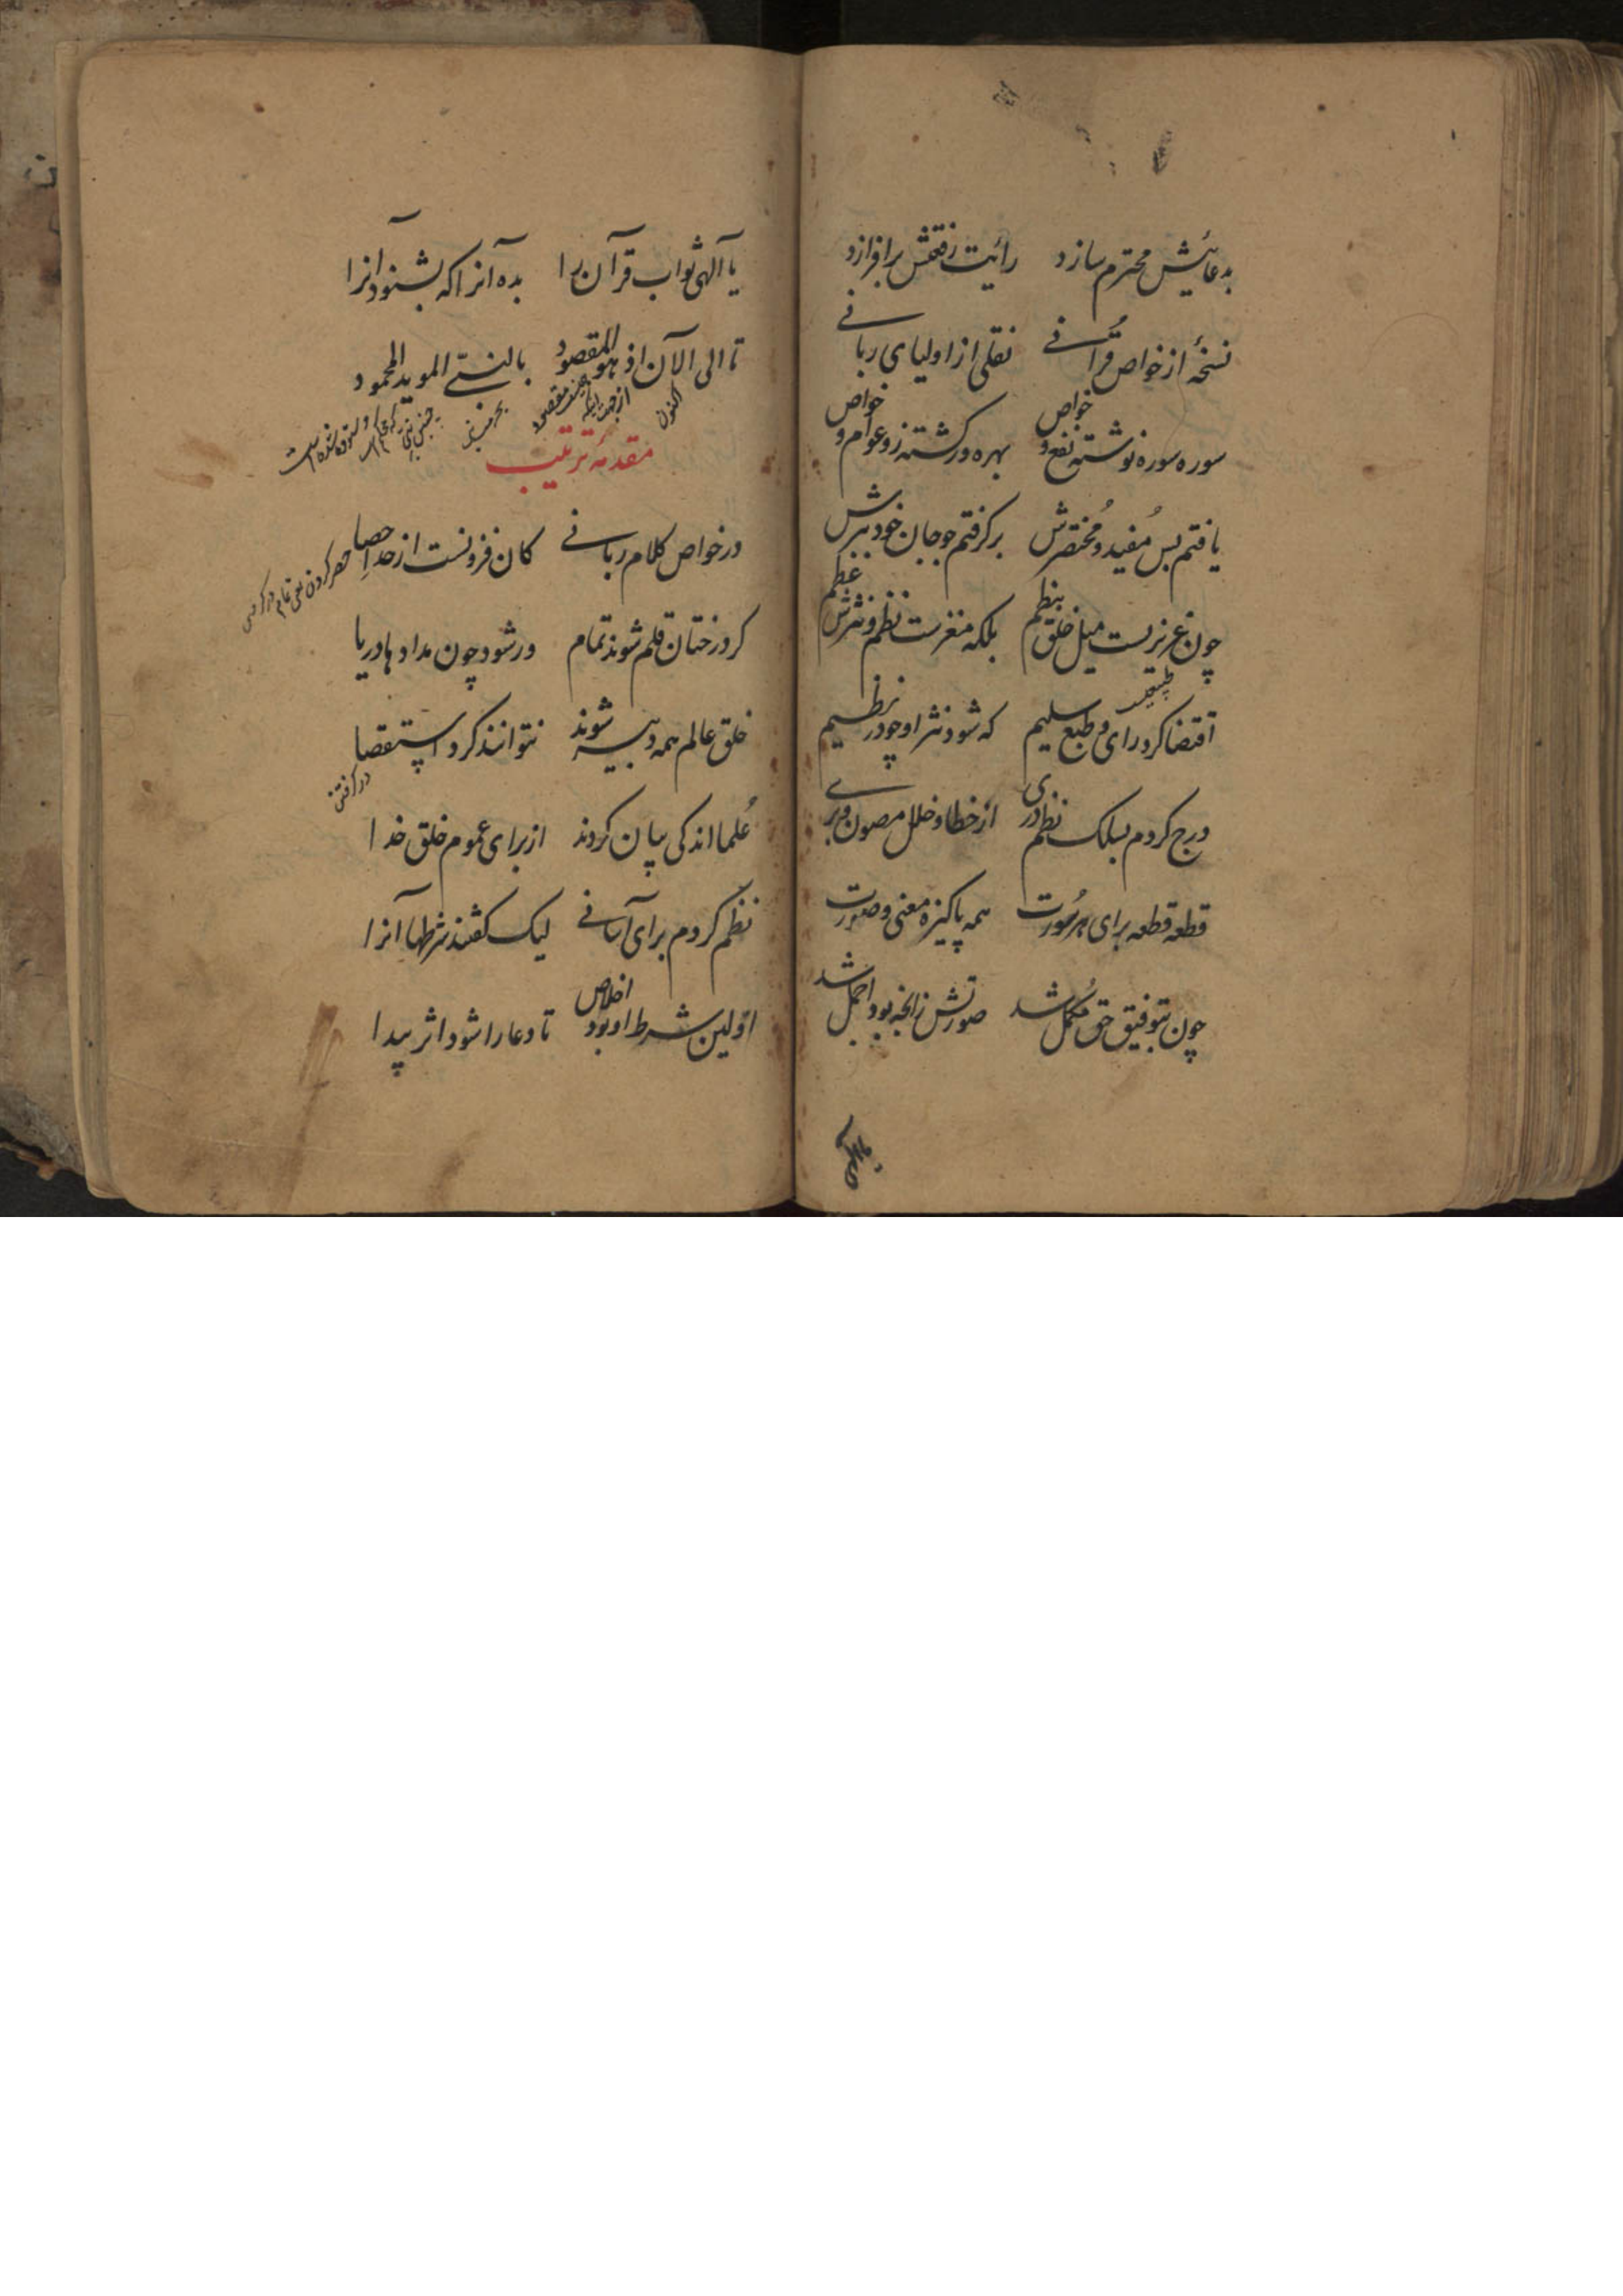 بدعایش محترم سازد رائیت رفتحش برافرازد
نسخهٔ از خواص قرآنے نقلی از اولیای ربانے
سوره سوره نوشته نفع و خواص بهره ور گشته زو عوام و خواص
یافتم بس مُفید و مُختصرش برگرفتم چو جان خود ببرش
چون عزیزست میل خلق بنظم بلکه مغزست نظم و نثرش عظم
اقتضا کرد رای و طبع سلیم که شود نثر او چو در نظیم
درج کردم بسلک نظم دری از خطا و خلل مصون و برے
قطعه قطعه برای هر سُورت همه پاکیزه معنی و صورت
چون بتوفیق حق مُکمل شد صورتش زانچه بود اجمل شد
یا آلهی ثواب قرآن را بده آنرا که بشنود آنرا
تا الی الآن اذ هو المقصود بالنبے الموید المحمود
اکنون از جهت اینکه مقصود
مقدمهٔ ترتیب
در خواص کلام ربانے کان فزونست از حد احصا
حصر کردن
گر درختان قلم شوند تمام ور شود چون مداد ها دریا
خلق عالم همه دبیر شوند نتوانند کرد استقصا
عُلما اندکی بیان کردند از برای عموم خلق خدا
نظم کردم برای آسانے لیک گفتند شرطها آنرا
اولین شرط او بود اخلاص تا دعا را شود اثر پیدا